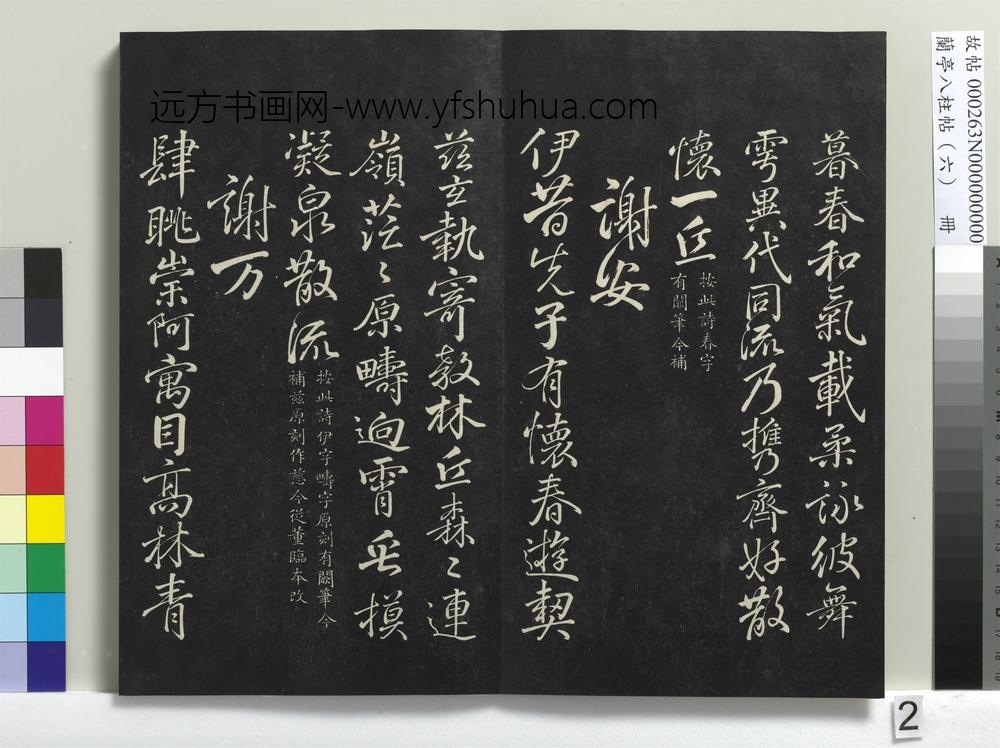 远方书画网-www.yfshuhua.com
暮春和氣載柔詠彼舞
雩異代同流乃攜齊好散
懷一丘
按此詩春字
有闕筆今補
謝安
伊昔先子有懷春遊契
茲玄執寄敖林丘森〻連
嶺茫〻原疇逈霄垂
凝泉散流
按此詩伊字疇字原刻有闕筆今
補茲原刻作慈今從董臨本改
謝万
肆眺崇阿寓目高林青
故帖 000263N000000000
蘭亭八柱帖（六） 冊
2